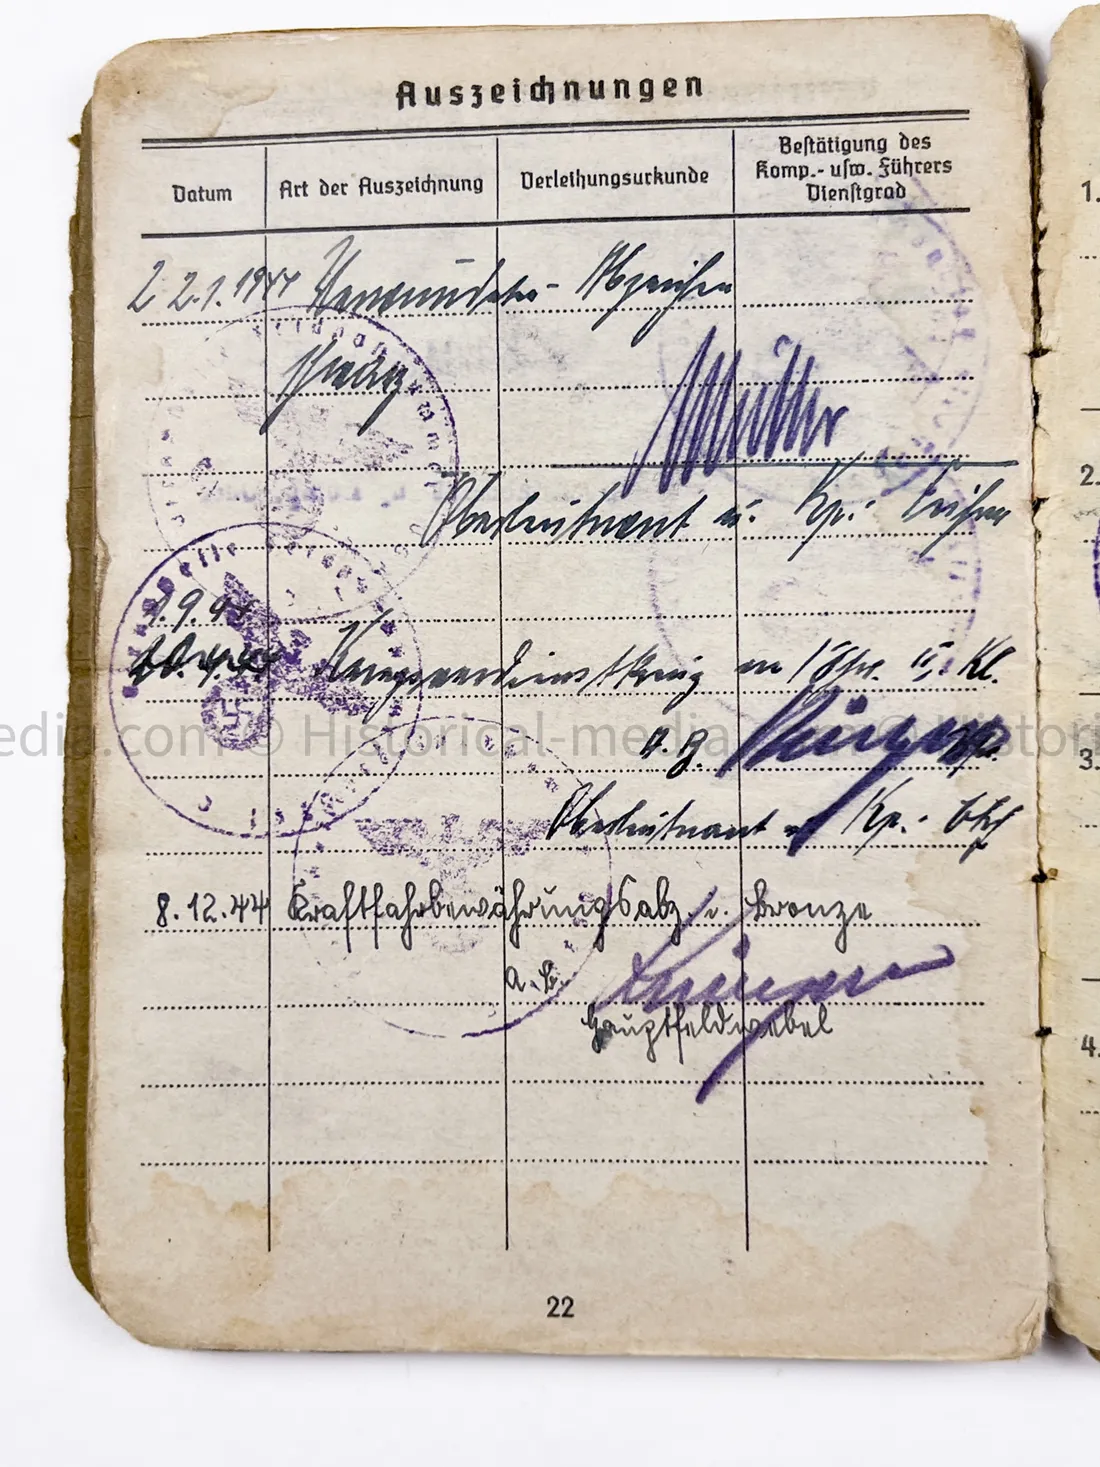 Auszeichnungen
Datum
Art der Auszeichnung
Verleihungsurkunde
Bestätigung des
Komp.- usw. Führers
Dienstgrad
22.1.1944 Verwundeten- Abzeichen
schwarz
Müller
Oberleutnant u. Kp.-
9.44
Kriegsverdienstkreuz m/Schw. II. Kl.
Oberleutnant Kp.-
8.12.44 Kraftfahrbewährungsabz. i. Bronze
Hauptfeldwebel
22
1.
2.
3.
4.
edia.com © Historical-media © Histori